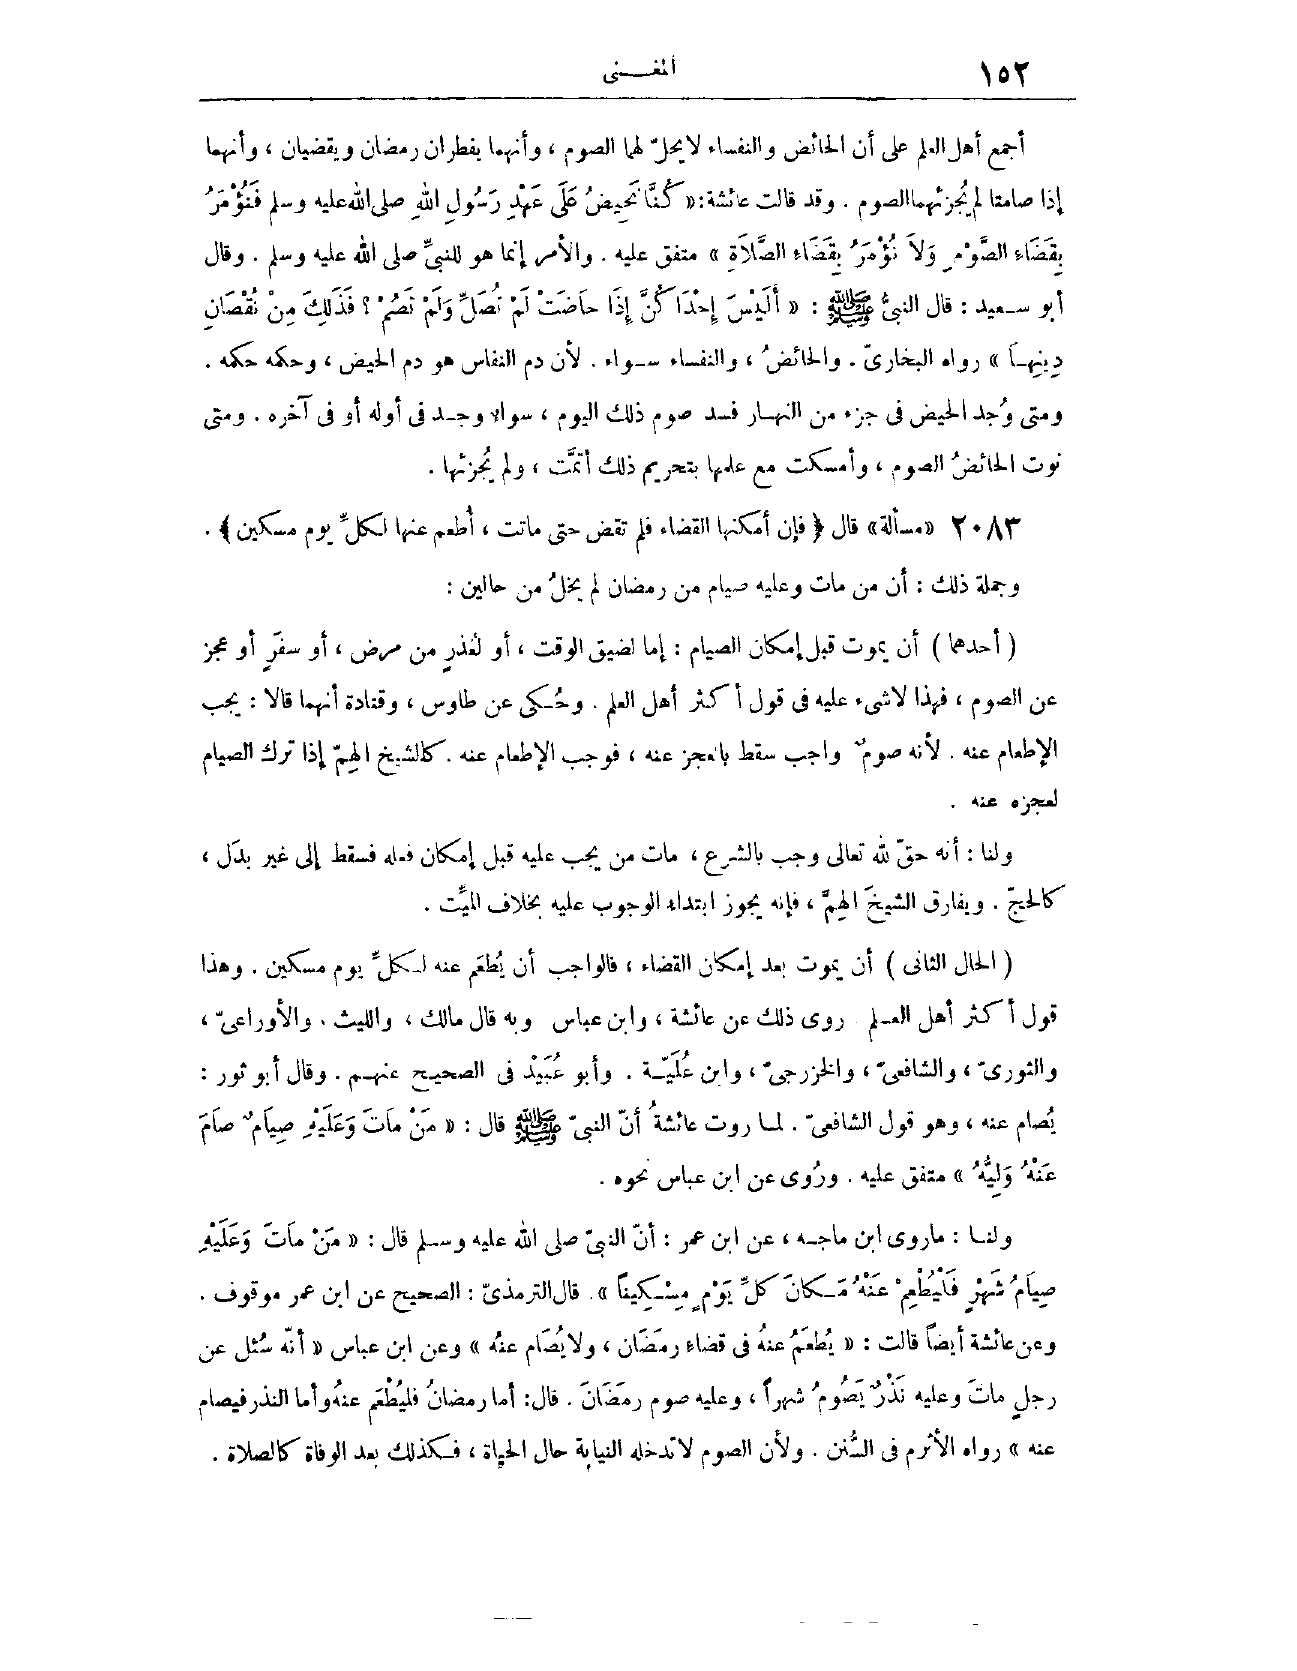 ١٥٢
المغـــنى
أجمع أهل العلم على أن الحائض والنفساء لا يحلّ لهما الصوم ، وأنهما يفطران رمضان ويقضيان ، وأنهما
إذا صامتا لم يُجزئهما الصوم . وقد قالت عائشة: « كُنَّا نَحِيضُ عَلَى عَهْدِ رَسُولِ اللهِ صلى الله عليه وسلم فَنُؤْمَرُ
بِقَضَاءِ الصَّوْمِ وَلاَ نُؤْمَرُ بِقَضَاءِ الصَّلاَةِ » متفق عليه . والأمر إنما هو للنبىِّ صلى الله عليه وسلم . وقال
أبو سـعيد : قال النبىُّ ﷺ : « أَلَيْسَ إِحْدَا كُنَّ إِذَا حاَضَتْ لَمْ تُصَلِّ وَلَمْ تَصُمْ ؟ فَذَلِكَ مِنْ نُقْصَانِ
دِينِهـاَ » رواه البخارىّ . والحائضُ ، والنفساء سـواء . لأن دم النفاس هو دم الحيض ، وحكمه حكمه .
ومتى وُجد الحيض فى جزء من النهـار فسد صوم ذلك اليوم ، سواء وجـد فى أوله أو فى آخره . ومتى
نوت الحائضُ الصوم ، وأمسكت مع علمها بتحريم ذلك أثمَّت ، ولم يُجزئها .
٢٠٨٣ «مسألة» قال ﴿ فإن أمكنها القضاء فلم تقض حتى ماتت ، أُطعم عنها لكلِّ يوم مسكين ﴾ .
وجملة ذلك : أن من مات وعليه صيام من رمضان لم يخلُ من حالين :
( أحدهما ) أن يموت قبل إمكان الصيام : إما لضيق الوقت ، أو لعُذرٍ من مرض ، أو سفَرٍ أو عجز
عن الصوم ، فهذا لاشىء عليه فى قول أكثر أهل العلم . وحُـكى عن طاوس ، وقتادة أنهما قالا : يجب
الإطعام عنه . لأنه صومٌ واجب سقط بالعجز عنه ، فوجب الإطعام عنه . كالشيخ الهِمّ إذا ترك الصيام
لعجزه عنه .
ولنا : أنه حقّ لله تعالى وجب بالشرع ، مات من يجب عليه قبل إمكان فعله فسقط إلى غير بدَل ،
كالحجّ . ويفارق الشيخَ الهِمَّ ، فإنه يجوز ابتداء الوجوب عليه بخلاف الميِّت .
( الحال الثانى ) أن يموت بعد إمكان القضاء ، فالواجب أن يُطعَم عنه لـكلِّ يوم مسكين . وهذا
قول أكثر أهل العـلم روى ذلك عن عائشة ، وابن عباس وبه قال مالك ، والليث . والأوراعىّ ،
والثورىّ ، والشافعىّ ، والخزرجىّ ، وابن عُلَيّـة . وأبو عُبَيْد فى الصحيح عنهـم . وقال أبو ثور :
يُصام عنه ، وهو قول الشافعىّ . لمـا روت عائشةُ أنّ النبىّ ﷺ قال : « مَنْ مَاتَ وَعَلَيْهِ صِيَامٌ صَامَ
عَنْهُ وَلِيُّهُ » متفق عليه . ورُوى عن ابن عباس نحوه .
ولنـا : ماروى ابن ماجـه ، عن ابن عمر : أنّ النبىّ صلى الله عليه وسـلم قال : « مَنْ ماَتَ وَعَلَيْهِ
صِيَامُ شَهْرٍ فَلْيُطْعِمْ عَنْهُ مَـكانَ كلِّ يَوْمٍ مِسْـكِيناً » . قال الترمذىّ : الصحيح عن ابن عمر موقوف .
وعن عائشة أيضاً قالت : « يُطعَمُ عنهُ فى قضاءِ رمضَان ، ولا يُصَام عنهُ » وعن ابن عباس « أنّه سُئل عن
رجلٍ ماتَ وعليه نَذْرٌ يَصُومُ شهراً ، وعليه صوم رمضَانَ . قال: أما رمضانُ فليُطْعَم عنهُ وأما النذر فيصام
عنه » رواه الأثرم فى السُّنن . ولأن الصوم لا تدخله النيابة حال الحياة ، فـكذلك بعد الوفاة كالصلاة .